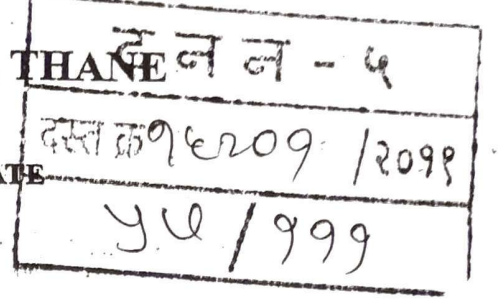 THANE ट न न - ५
दस्त क्र १६२०१ /२०१९
/ १११